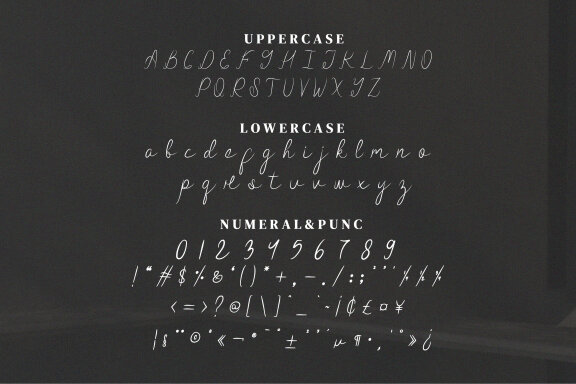 UPPERCASE
A B C D E F G H I J K L M N O
P Q R S T U V W X Y Z
LOWERCASE
a b c d e f g h i j k l m n o
p q r s t u v w x y z
NUMERAL&PUNC
0 1 2 3 4 5 6 7 8 9
! “ # $ % & ‘ ( ) * + , - . / : ; ’ ’ ‘
< = > ? @ [ \ ] ^ _ ` ~ ¡ ¢ £ ¤ ¥
¦ § ¨ © ª « ¬ ® ¯ ° ± ² ³ ´ µ ¶ • , ¹ º » ¿